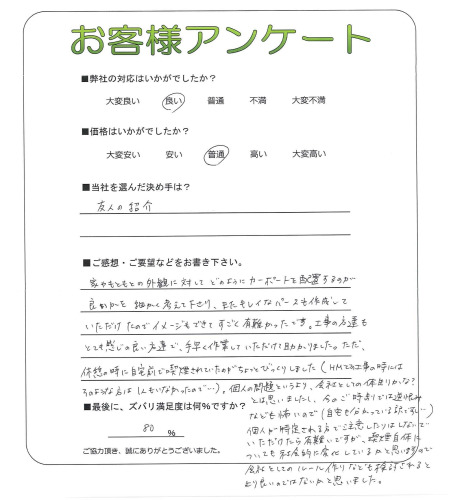 お客様アンケート
■弊社の対応はいかがでしたか？
大変良い 良い 普通 不満 大変不満
■価格はいかがでしたか？
大変安い 安い 普通 高い 大変高い
■当社を選んだ決め手は？
友人の紹介
■ご感想・ご要望などをお書き下さい。
家やもともとの外観に対してどのようにカーポートを配置するのが
良いかを細かく考えて下さり、またキレイなパースも作成して
いただけたのでイメージもできてすごく有難かったです。工事の方達も
とても感じの良い方達で、手早く作業していただけて助かりました。ただ、
休憩の時に自宅前で喫煙されていたのがちょっとびっくりしました（HMでの工事の時には
そのような方は1人もいなかったので…）。個人の問題というより、会社としての体制かな？
とは思いましたし、今のご時勢では逆恨み
■最後に、ズバリ満足度は何％ですか？
なども怖いので（自宅も分かっている訳ですし…）
80 %
個人が特定される方で注意したりはしないで
いただけたら有難いですが、喫煙自体に
ご協力頂き、誠にありがとうございました。
ついても社会的に変化しているかと思いますので
会社としてのルール作りなども検討されると
より良いのではないかと思いました。